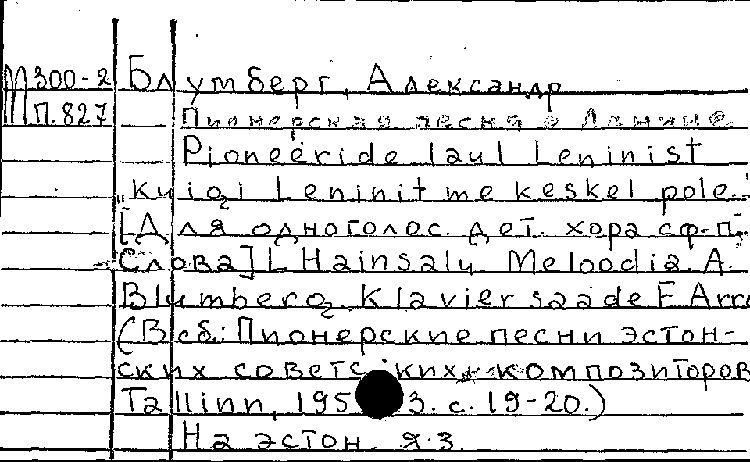 М300-2 Блумберг, Александр
П.827 Пионерская песня о Ленине
Pioneeride laul Leninist
„Kuigi Leninit me keskel pole."
[Для одноголос. дет. хора с ф-п.
Слова] L Hainsalu. Meloodia. A.
Blumberg. Klavier saade E Arro
(В сб.: Пионерские песни эстон-
ских советских композиторов
Tallinn, 195 3. с. 19-20.)
На эстон. яз.